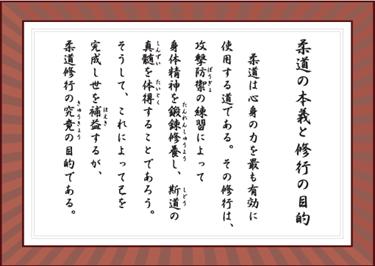 柔道の本義と修行の目的
柔道は心身の力を最も有効に
使用する道である。その修行は、
攻撃防禦の練習によって
身体精神を鍛錬修養し、斯道の
真髄を体得することであろう。
そうして、これによって己を
完成し世を補益するが、
柔道修行の究竟の目的である。